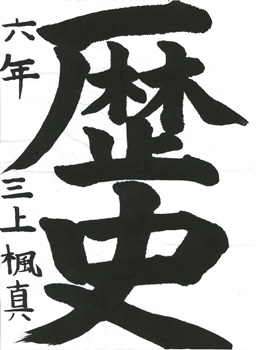 歴史
六年 三上楓真